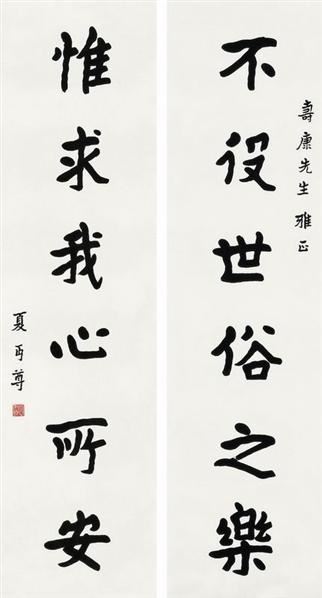 壽康先生 雅正
不役世俗之樂
惟求我心所安
夏丏尊